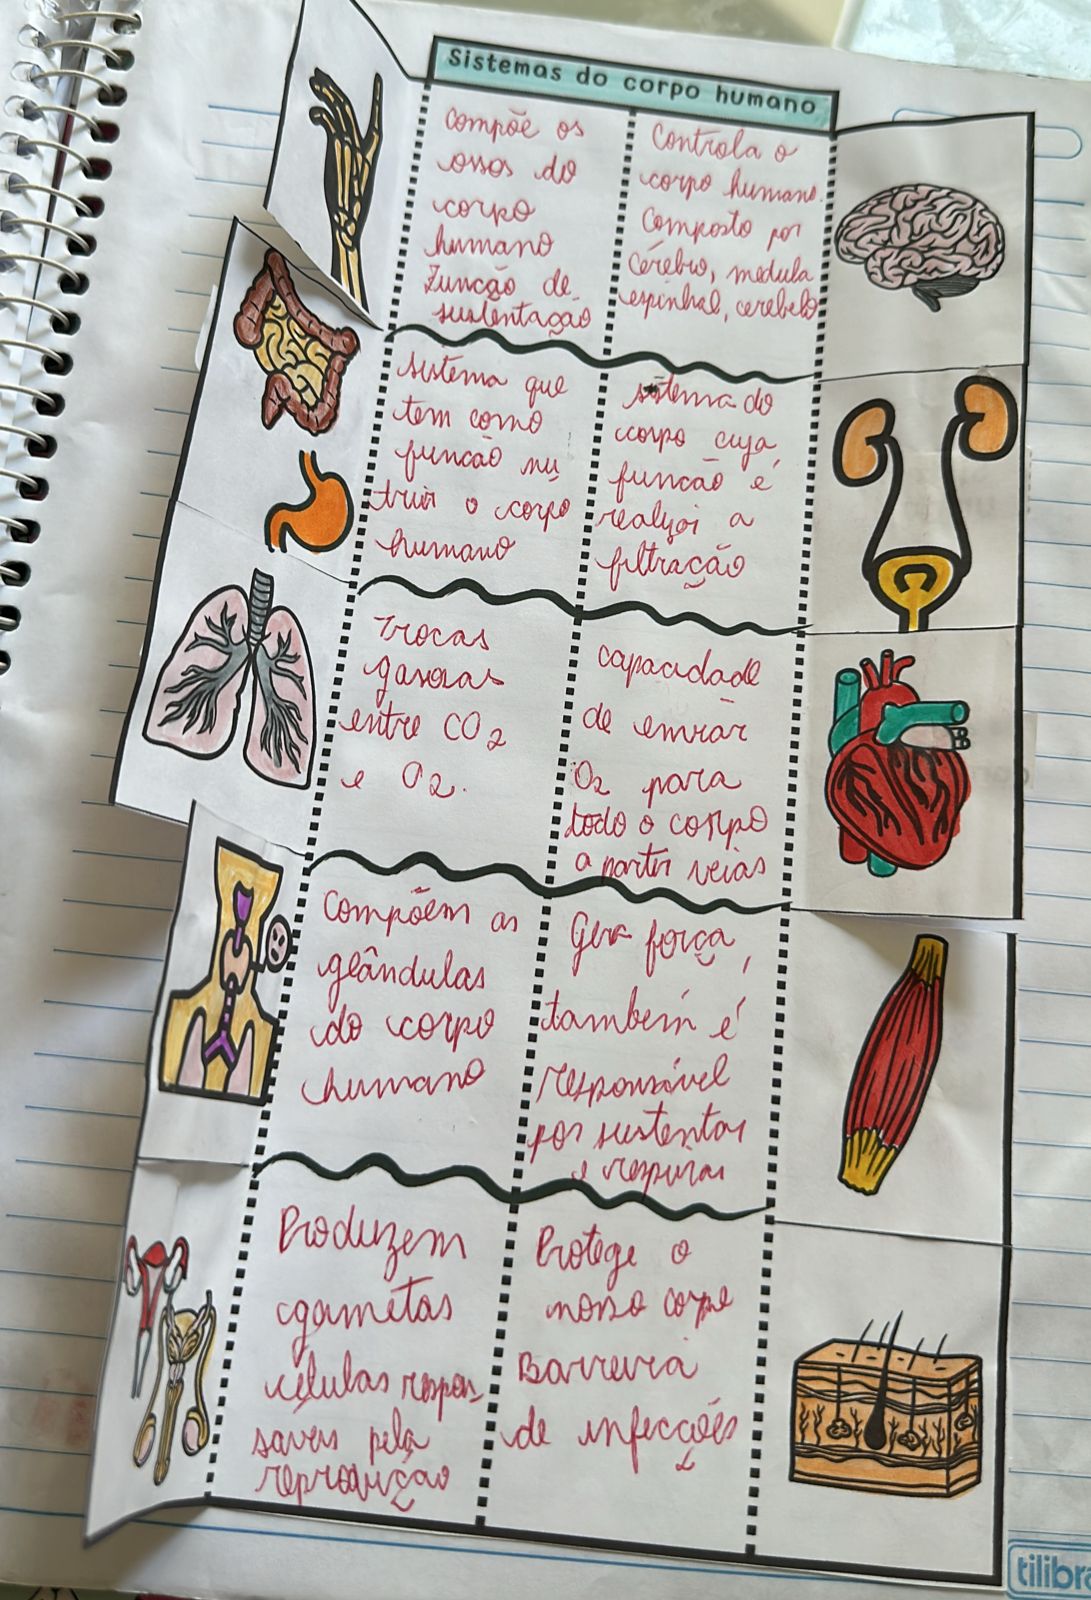 Sistemas do corpo humano
compõe os
ossos do
corpo
humano
Função de
sustentação
Controla o
corpo humano.
Composto por
Cérebro, medula
espinhal, cerebelo
sistema que
tem como
funcão nu
trir o corpo
humano
sistema do
corpo cuja
funcão é
realizar a
filtração
Trocas
gasosas
entre CO2
e O2.
capacidade
de enviar
O2 para
todo o corpo
a partir veias
Compõem as
glândulas
do corpo
humano
Gera força,
também é
responsável
por sustentar
e respirar
Produzem
gametas
células respon
saveis pela
reprodução
Protege o
nosso corpo
Barreira
de infecções
tilibra